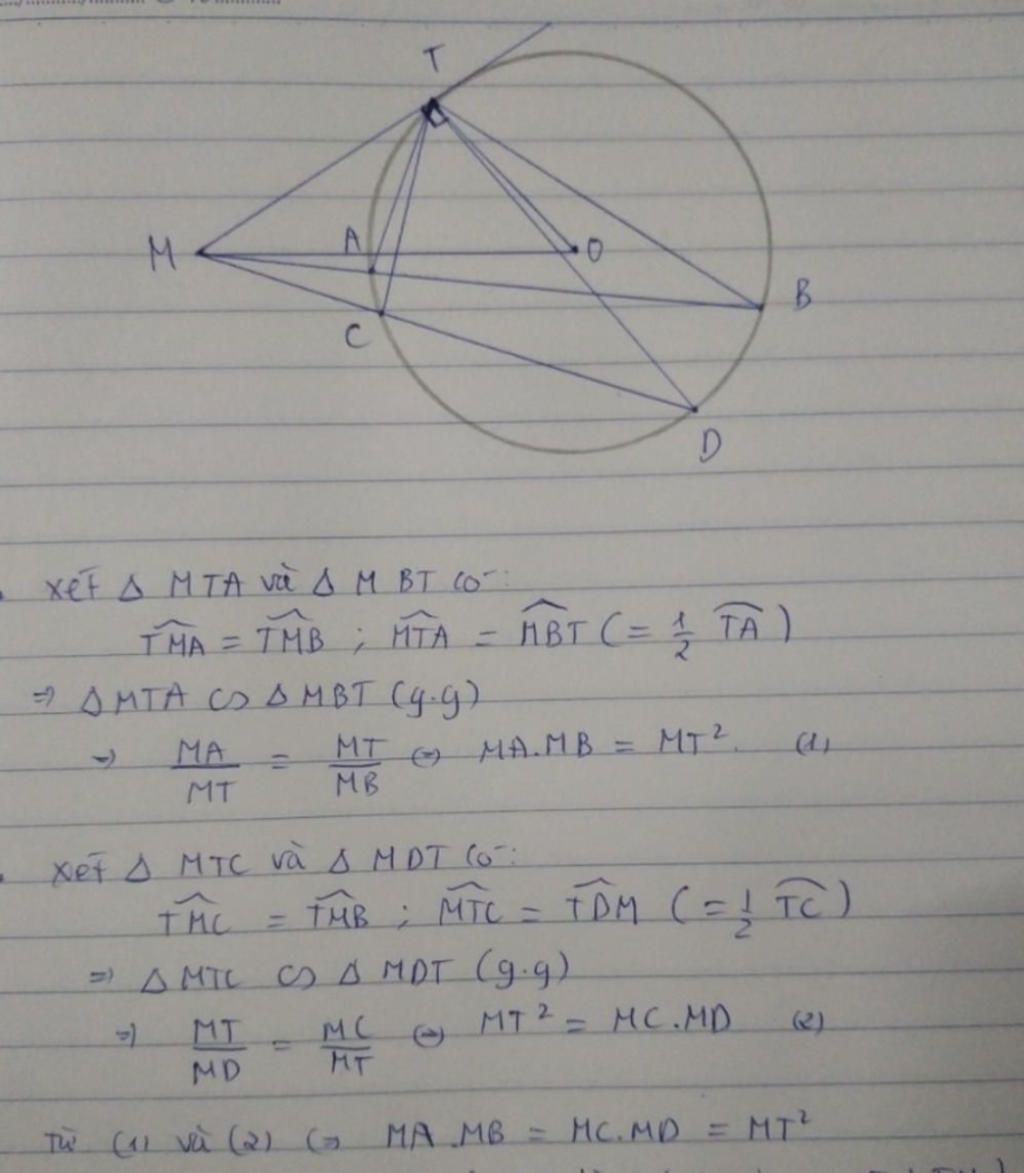 T
M
A
O
B
C
D
Xét Δ MTA và Δ MBT có:
$\widehat{TMA} = \widehat{TMB}$ ; $\widehat{MTA} = \widehat{MBT}$ (= $\frac{1}{2}$ $\widehat{TA}$)
⇒ Δ MTA ∽ Δ MBT (g.g)
⇒ $\frac{MA}{MT} = \frac{MT}{MB}$ ⇔ MA.MB = MT². (1)
Xét Δ MTC và Δ MDT có:
$\widehat{TMC} = \widehat{TMB}$ ; $\widehat{MTC} = \widehat{TDM}$ (= $\frac{1}{2}$ $\widehat{TC}$)
⇒ Δ MTC ∽ Δ MDT (g.g)
⇒ $\frac{MT}{MD} = \frac{MC}{MT}$ ⇔ MT² = MC.MD (2)
Từ (1) và (2) ⇒ MA.MB = MC.MD = MT²